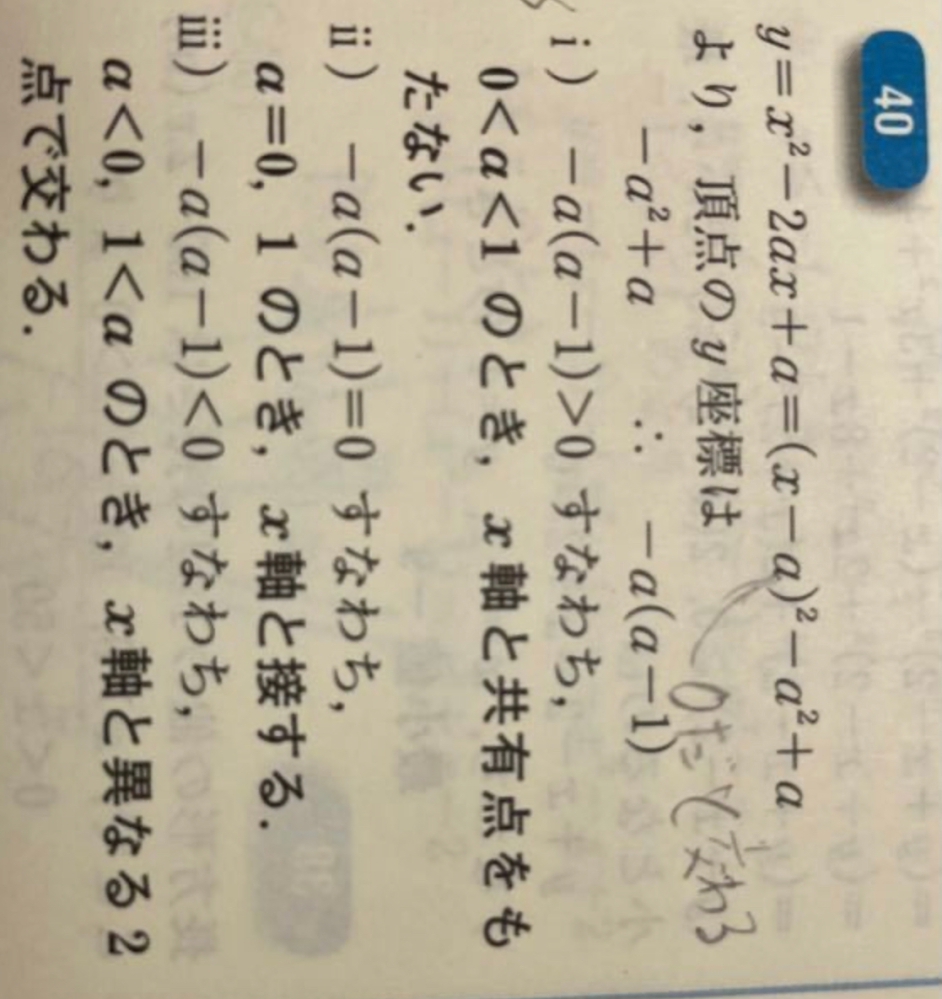 40
y=x²-2ax+a=(x-a)²-a²+a
より, 頂点の y 座標は
-a²+a ∴ -a(a-1)
i) -a(a-1)>0 すなわち,
0<a<1 のとき, x 軸と共有点をも
たない.
ii) -a(a-1)=0 すなわち,
a=0, 1 のとき, x 軸と接する.
iii) -a(a-1)<0 すなわち,
a<0, 1<a のとき, x 軸と異なる 2
点で交わる.